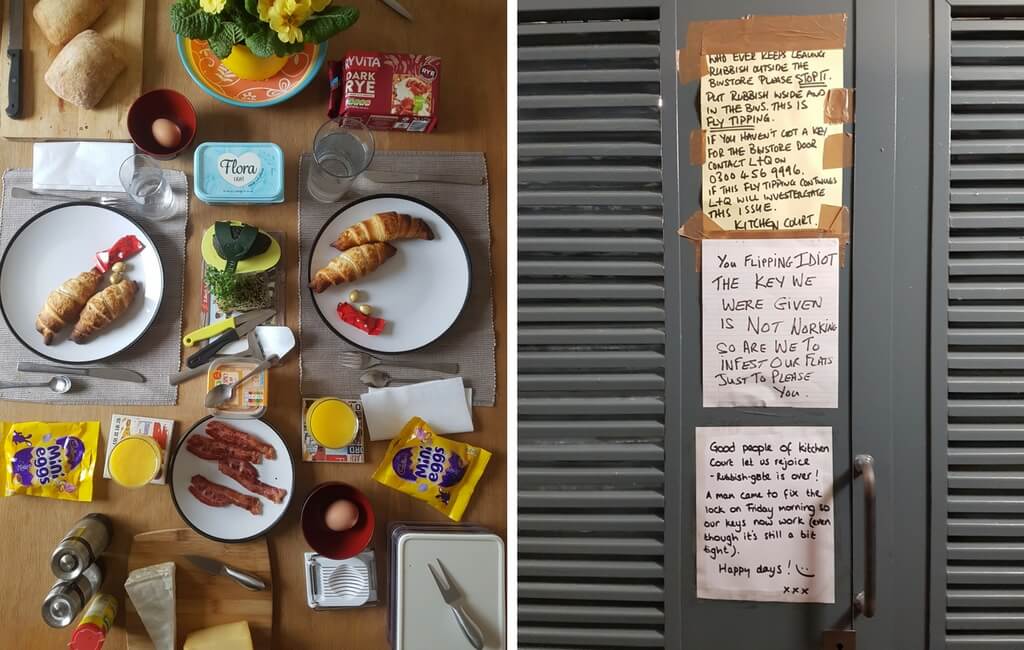 RYVITA
DARK
RYE
RYE
Flora
LIGHT
Mini
eggs
Mini
eggs
WHO EVER KEEPS LEAVING
RUBBISH OUTSIDE THE
BINSTORE PLEASE STOP IT.
PUT RUBBISH INSIDE AND
IN THE BINS. THIS IS
FLY TIPPING.
IF YOU HAVEN'T GOT A KEY
FOR THE BINSTORE DOOR
CONTACT L+Q ON
0300 456 9996.
IF THIS FLY TIPPING CONTINUES
L+Q WILL INVESTERGATE
THIS ISSUE.
KITCHEN COURT.
YOU FLIPPING IDIOT
THE KEY WE
WERE GIVEN
IS NOT WORKING
SO ARE WE TO
INFEST OUR FLATS
JUST TO PLEASE
YOU.
Good people of Kitchen
Court let us rejoice
- Rubbish-gate is over!
A man came to fix the
lock on Friday morning so
our keys now work (even
though it's still a bit
tight).
Happy days!
xxx